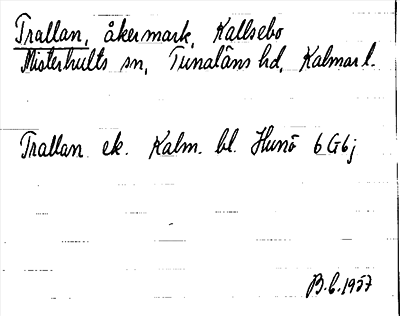 Trallan, åkermark, Kallsebo
Misterhults sn, Tunaläns hd, Kalmar l.
Trallan ek. Kalm. bl. Hunö 6G6j
B.C. 1957